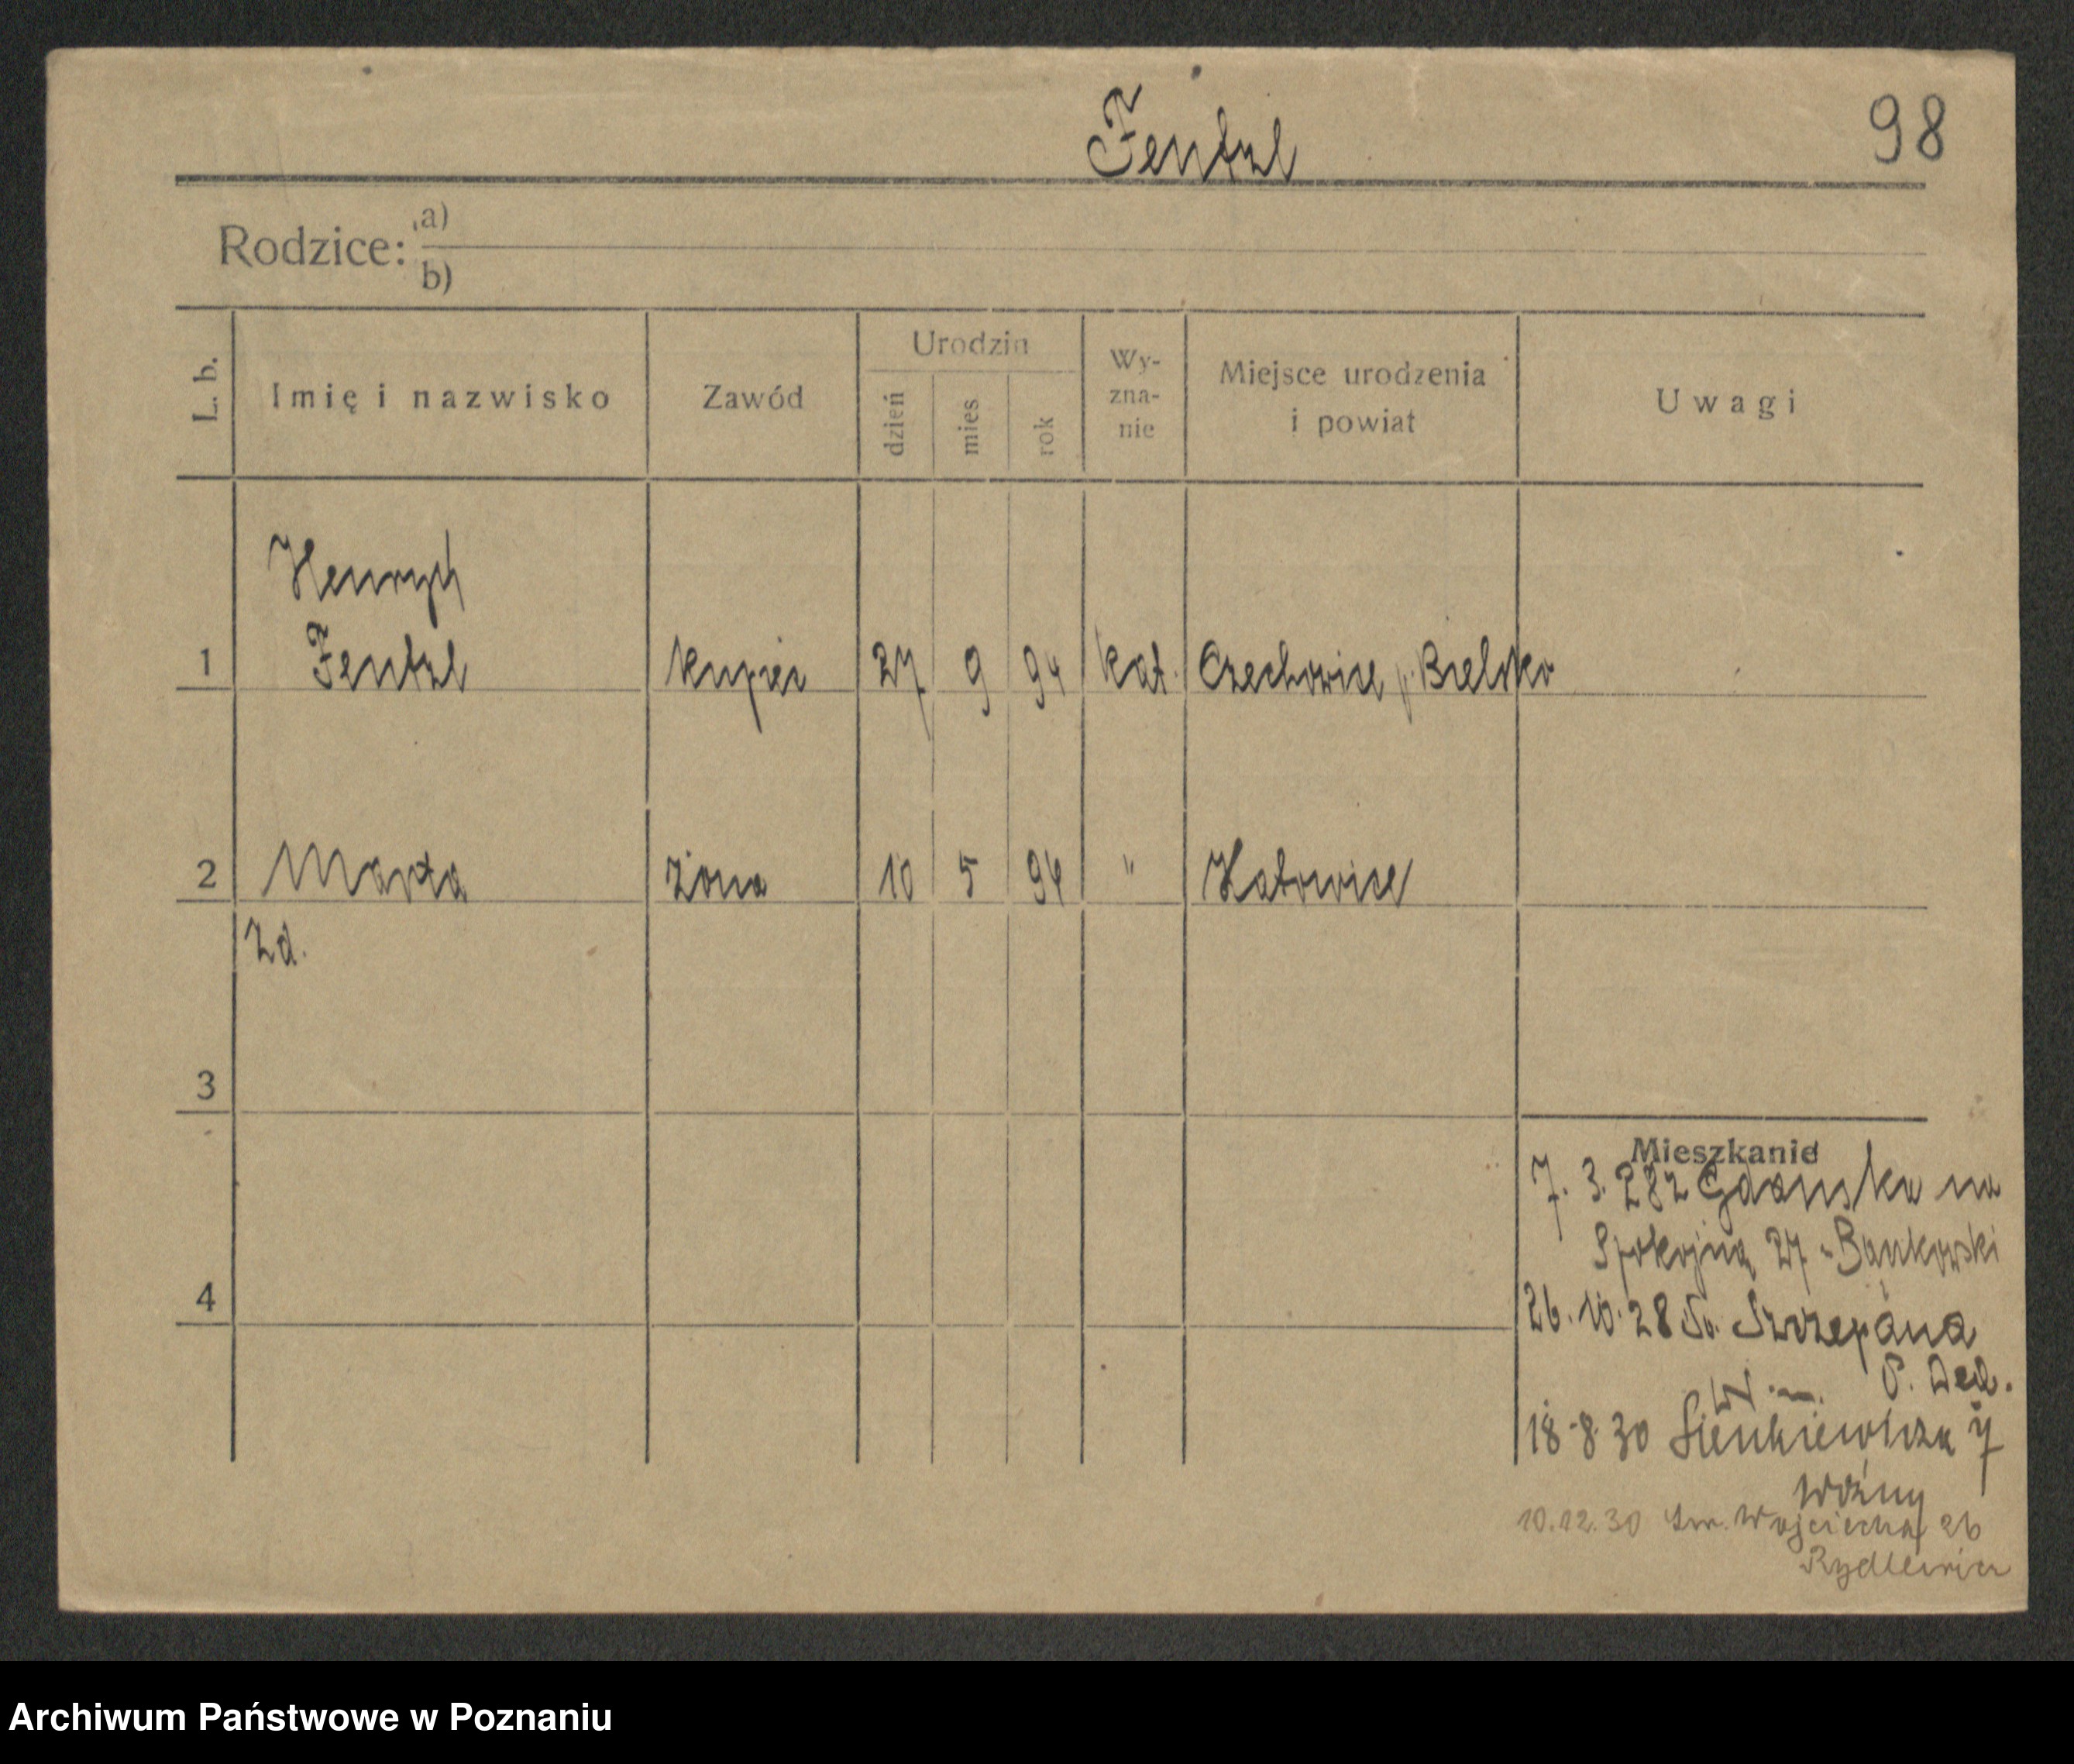 Fentzl
98
Rodzice: a)
b)
L. b.
Imię i nazwisko
Zawód
Urodzin
dzień
mies
rok
Wy-
zna-
nie
Miejsce urodzenia
i powiat
Uwagi
Henryk
1 Fentzl kupiec 27 9 94 kat. Czechowice p. Bielsko
2 Marta żona 10 5 94 " Katowice
zd.
3
Mieszkanie
7. 3. 28 z Gdańska na
Spokojną 27 - Bankowski
4
26. 10. 28 Św. Szczepana
P. Ded.
18-8-30 Sienkiewicza 7
Woźny
10.12.30 Św. Wojciecha 26
Rydlewicz
Archiwum Państwowe w Poznaniu